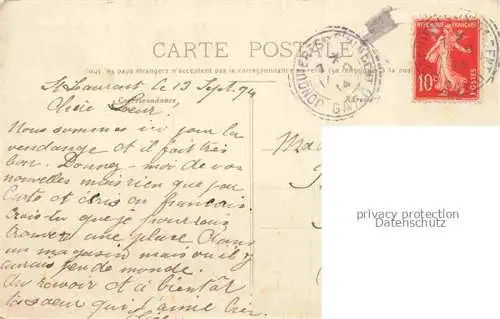 CARTE POSTALE
Tous les pays étrangers n'acceptent pas la correspondance
Correspondance
REPUBLIQUE FRANÇAISE
10c
POSTES
GARD
St Laurent le 13 Sept 14
Chère Sœur.
Nous sommes ici pour la
vendange et il fait très
bon. Donnez-moi de vos
nouvelles mais rien que par
Carte et écris en français.
Crois tu que je pourrais
trouver une place dans
un magasin mais où il y
aurais peu de monde.
Au revoir et à bientôt
ta sœur qui t'aime bien
privacy protection
Datenschutz